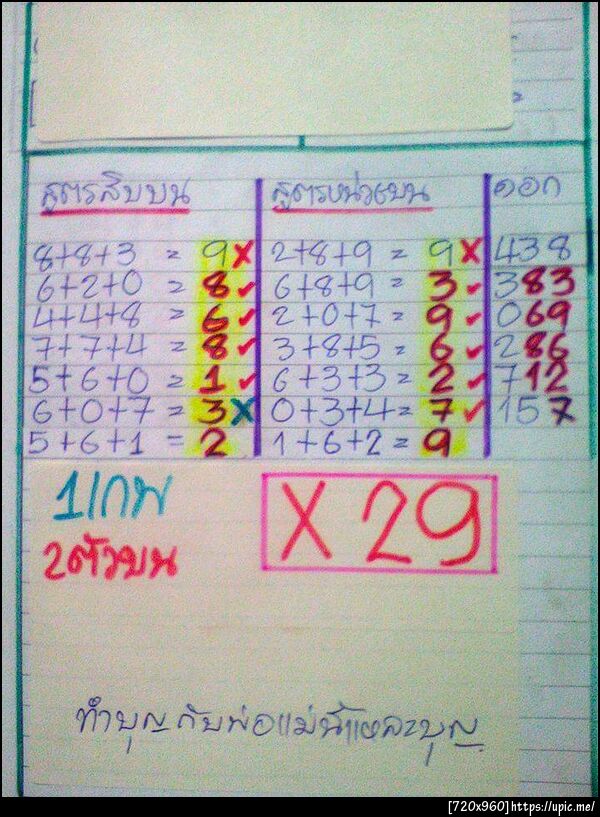 สูตรสิบบน สูตรหน่วยบน ออก
8+8+3 = 9 X 2+8+9 = 9 X 438
6+2+0 = 8 ✓ 6+8+9 = 3 ✓ 383
4+4+8 = 6 ✓ 2+0+7 = 9 ✓ 069
7+7+4 = 8 ✓ 3+8+5 = 6 ✓ 286
5+6+0 = 1 ✓ 6+3+3 = 2 ✓ 712
6+0+7 = 3 X 0+3+4 = 7 ✓ 157
5+6+1 = 2 1+6+2 = 9
1เทพ X 29
2ตัวบน
ทำบุญกับพ่อแม่นี้แหละบุญ
[720x960]https://upic.me/